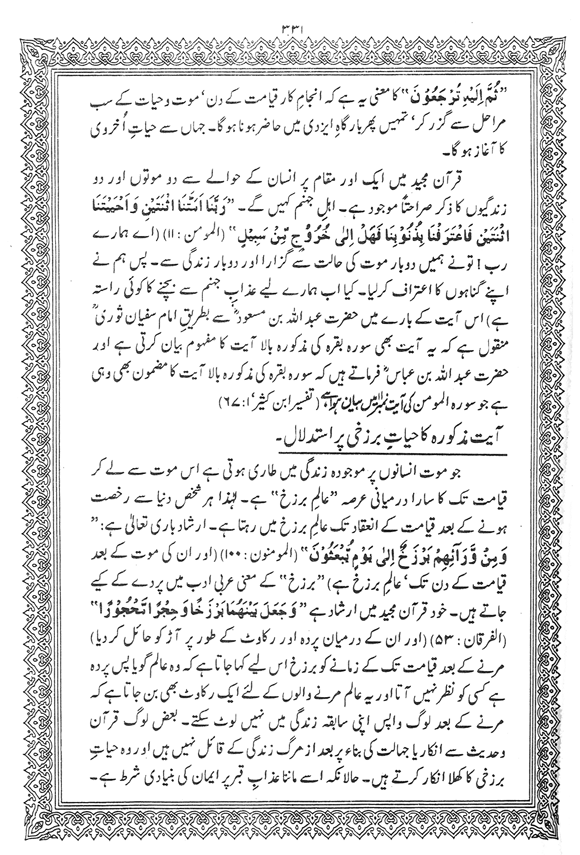 ۳۳۱
”ثُمَّ اِلَیْهِ تُرْجَعُوْنَ“ کا معنی یہ ہے کہ انجام کار قیامت کے دن‘ موت و حیات کے سب
مراحل سے گزر کر‘ تمہیں پھر بارگاہِ ایزدی میں حاضر ہونا ہو گا۔ جہاں سے حیاتِ اُخروی
کا آغاز ہو گا۔
قرآن مجید میں ایک اور مقام پر انسان کے حوالے سے دو موتوں اور دو
زندگیوں کا ذکر صراحتاً موجود ہے۔ اہل جہنم کہیں گے۔ ”رَبَّنَا اَمَتَّنَا اثْنَتَیْنِ وَاَحْیَیْتَنَا
اثْنَتَیْنِ فَاعْتَرَفْنَا بِذُنُوْبِنَا فَهَلْ اِلٰی خُرُوْجٍ مِّنْ سَبِیْلٍ“ (المومن: ۱۱) (اے ہمارے
رب! تونے ہمیں دوبار موت کی حالت سے گزارا اور دوبار زندگی سے۔ پس ہم نے
اپنے گناہوں کا اعتراف کرلیا۔ کیا اب ہمارے لیے عذابِ جہنم سے بچنے کا کوئی راستہ
ہے) اس آیت کے بارے میں حضرت عبد اللہ بن مسعودؓ سے بطریقِ امام سفیان ثوریؒ
منقول ہے کہ یہ آیت بھی سورہ بقرہ کی مذکورہ بالا آیت کا مفہوم بیان کرتی ہے اور
حضرت عبد اللہ بن عباسؓ فرماتے ہیں کہ سورہ بقرہ کی مذکورہ بالا آیت کا مضمون بھی وہی
ہے جو سورہ المومن کی آیت نمبر۱۱ میں بیان ہوا ہے (تفسیر ابن کثیر‘ ۱: ۶۷)
آیت مذکورہ کا حیاتِ برزخی پر استدلال۔
جو موت انسانوں پر موجودہ زندگی میں طاری ہوتی ہے اس موت سے لے کر
قیامت تک کا سارا درمیانی عرصہ ”عالمِ برزخ“ ہے۔ لہٰذا ہر شخص دنیا سے رخصت
ہونے کے بعد قیامت کے انعقاد تک عالمِ برزخ میں رہتا ہے۔ ارشاد باری تعالیٰ ہے: ”
وَمِنْ وَّرَآئِهِمْ بَرْزَخٌ اِلٰی یَوْمِ یُبْعَثُوْنَ“ (المومنون: ۱۰۰) (اور ان کی موت کے بعد
قیامت کے دن تک‘ عالمِ برزخ ہے) ”برزخ“ کے معنی عربی ادب میں پردے کے کیے
جاتے ہیں۔ خود قرآن مجید میں ارشاد ہے ”وَجَعَلَ بَیْنَهُمَا بَرْزَخًا وَّحِجْرًا مَّحْجُوْرًا“
(الفرقان: ۵۳) (اور ان کے درمیان پردہ اور رکاوٹ کے طور پر آڑ کو حائل کر دیا)
مرنے کے بعد قیامت تک کے زمانے کو برزخ اس لیے کہا جاتا ہے کہ وہ عالم گویا پس پردہ
ہے کسی کو نظر نہیں آتا اور یہ عالم مرنے والوں کے لئے ایک رکاوٹ بھی بن جاتا ہے کہ
مرنے کے بعد لوگ واپس اپنی سابقہ زندگی میں نہیں لوٹ سکتے۔ بعض لوگ قرآن
و حدیث سے انکار یا جہالت کی بناء پر بعد از مرگ زندگی کے قائل نہیں ہیں اور وہ حیاتِ
برزخی کا کھلا انکار کرتے ہیں۔ حالانکہ اسے ماننا عذابِ قبر پر ایمان کی بنیادی شرط ہے۔